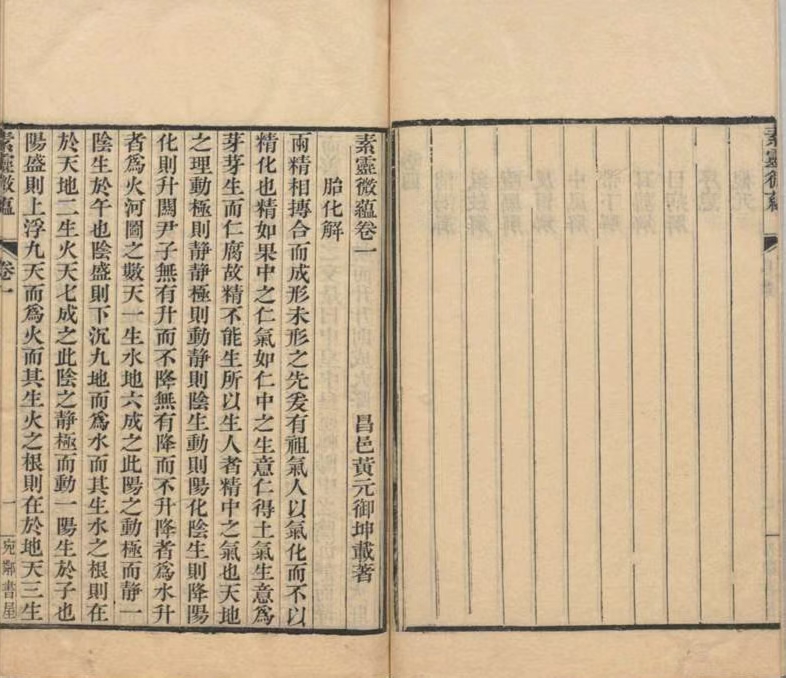 素靈微蘊
素靈微蘊卷一　昌邑黃元御坤載著
胎化解
兩精相摶合而成形未形之先爰有祖氣人以氣化而不以
精化也精如果中之仁氣如仁中之生意仁得土氣生意爲
芽芽生而仁腐故精不能生所以生人者精中之氣也天地
之理動極則靜靜極則動靜則陰生動則陽化陰生則降陽
化則升關尹子無有升而不降無有降而不升降者爲水升
者爲火河圖之數天一生水地六成之此陽之動極而靜一
陰生於午也陰盛則下沉九地而爲水而其生水之根則在
於天地二生火天七成之此陰之靜極而動一陽生於子也
陽盛則上浮九天而爲火而其生火之根則在於地天三生
素靈微蘊　卷一　一　宛鄰書屋